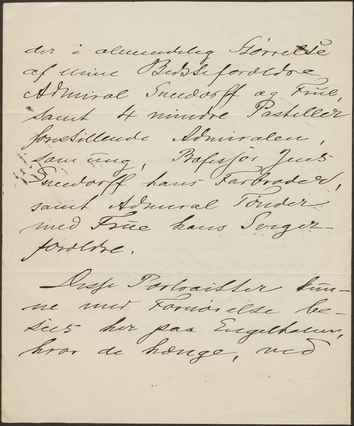 der i almindelig Størrelse
af mine Bedsteforældre
Admiral Sneedorff og Frue,
samt 4 mindre Pasteller
forestillende Admiralen,
som ung, Profesjor Jens
Sneedorff hans Farbroder,
samt Admiral Tønder
med Frue hans Sviger-
forældre.
Disse Portraitter kun-
ne med Fornøielse be-
sees her paa Engelholm,
hvor de hænge, ved